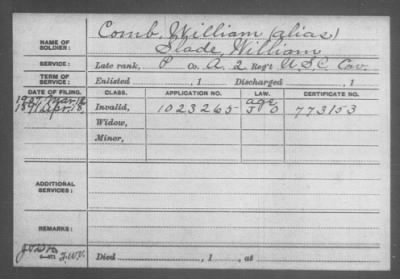 NAME OF SOLDIER: Comb, William (alias)
Slade, William
SERVICE: Late rank, P Co. A. 2 Reg't U.S.C. Cav.
TERM OF SERVICE: Enlisted , 1 Discharged , 1
DATE OF FILING. CLASS. APPLICATION NO. LAW. CERTIFICATE NO.
1907 Mar age
1891 Apr. 8, Invalid, 1023265 J O 773153
Widow,
Minor,
ADDITIONAL SERVICES:
REMARKS:
Died , 1 , at